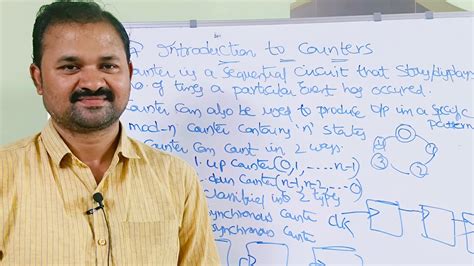 Introduction to Counters
ounter is a sequential circuit that
no. of times a particular Event has occurred.
ounter can also be used to produce o/p in a specific
pattern
mod-n counter contains 'n' states
ounter can count in 2 ways.
1. up counter (0,1,....n-1)
down counter (n-1, n-2, ....0)
classified into 2 types
synchronous counte
synchronous counte
clk
0
1
2
3